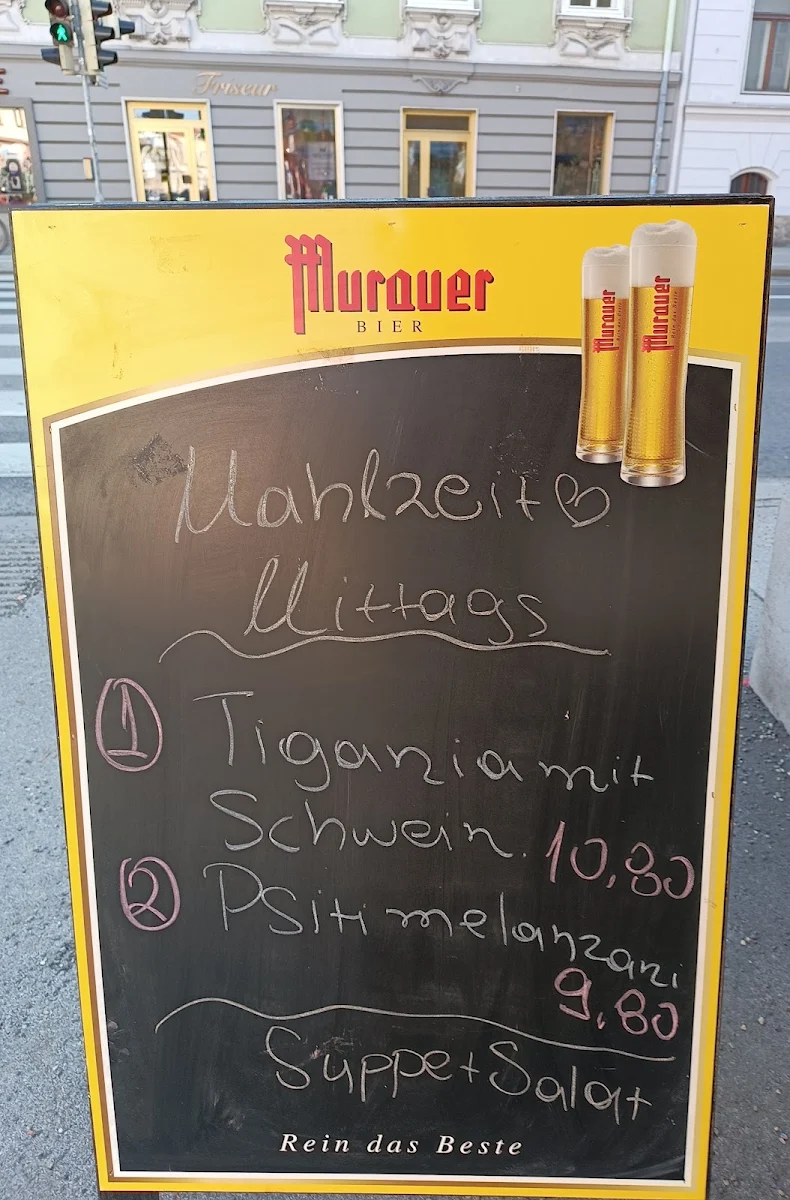 Friseur
Murauer
BIER
Murauer
Murauer
Mahlzeit
Mittags
1 Tigania mit
Schwein. 10,80
2 PSiti melanzani
9,80
Suppe+Salat
Rein das Beste